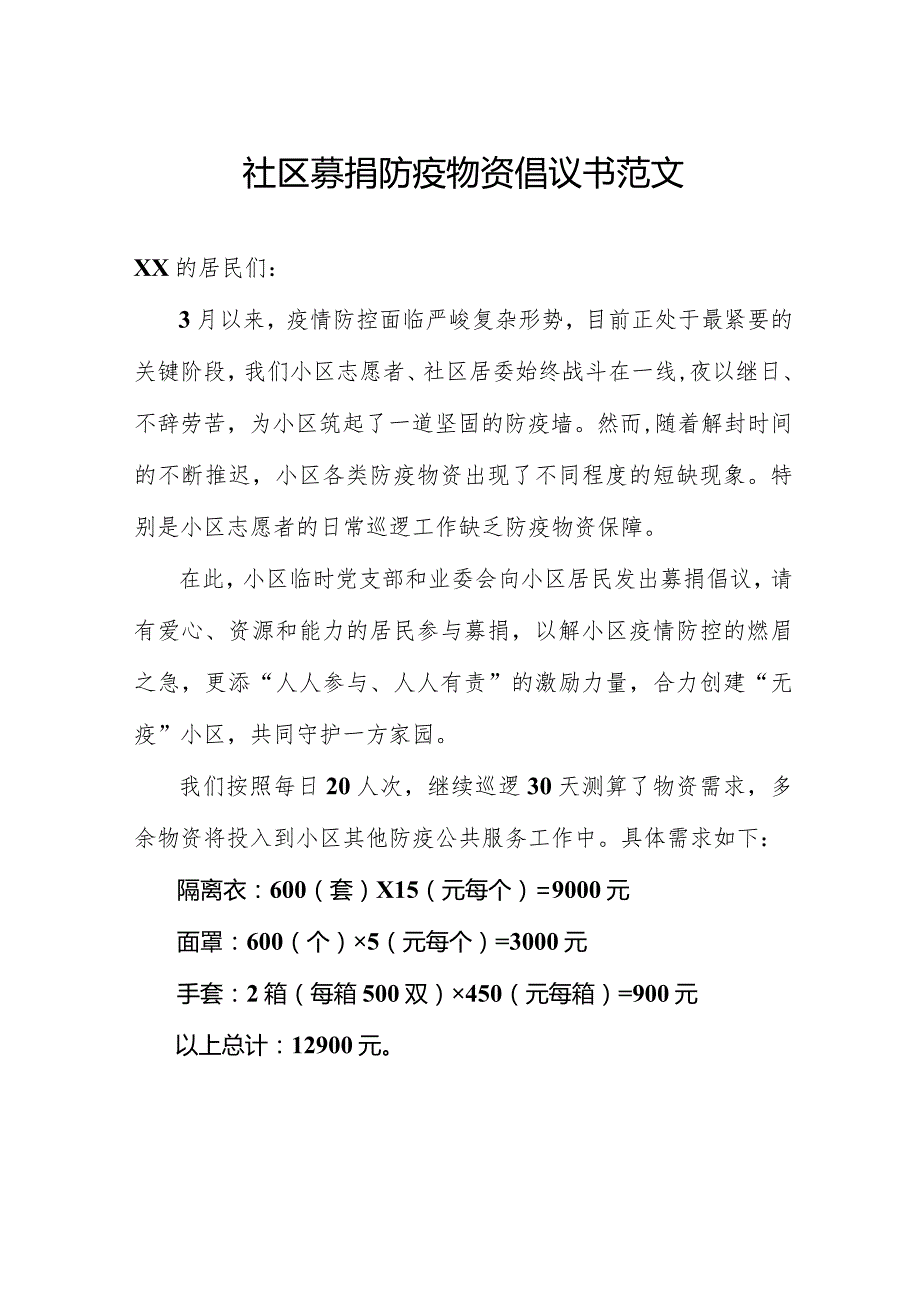 社区募捐防疫物资倡议书范文
XX的居民们：
3月以来，疫情防控面临严峻复杂形势，目前正处于最紧要的
关键阶段，我们小区志愿者、社区居委始终战斗在一线,夜以继日、
不辞劳苦，为小区筑起了一道坚固的防疫墙。然而,随着解封时间
的不断推迟，小区各类防疫物资出现了不同程度的短缺现象。特
别是小区志愿者的日常巡逻工作缺乏防疫物资保障。
在此，小区临时党支部和业委会向小区居民发出募捐倡议，请
有爱心、资源和能力的居民参与募捐，以解小区疫情防控的燃眉
之急，更添“人人参与、人人有责”的激励力量，合力创建“无
疫”小区，共同守护一方家园。
我们按照每日20人次，继续巡逻30天测算了物资需求，多
余物资将投入到小区其他防疫公共服务工作中。具体需求如下：
隔离衣：600（套）X15（元每个）=9000元
面罩：600（个）×5（元每个）=3000元
手套：2箱（每箱500双）×450（元每箱）=900元
以上总计：12900元。